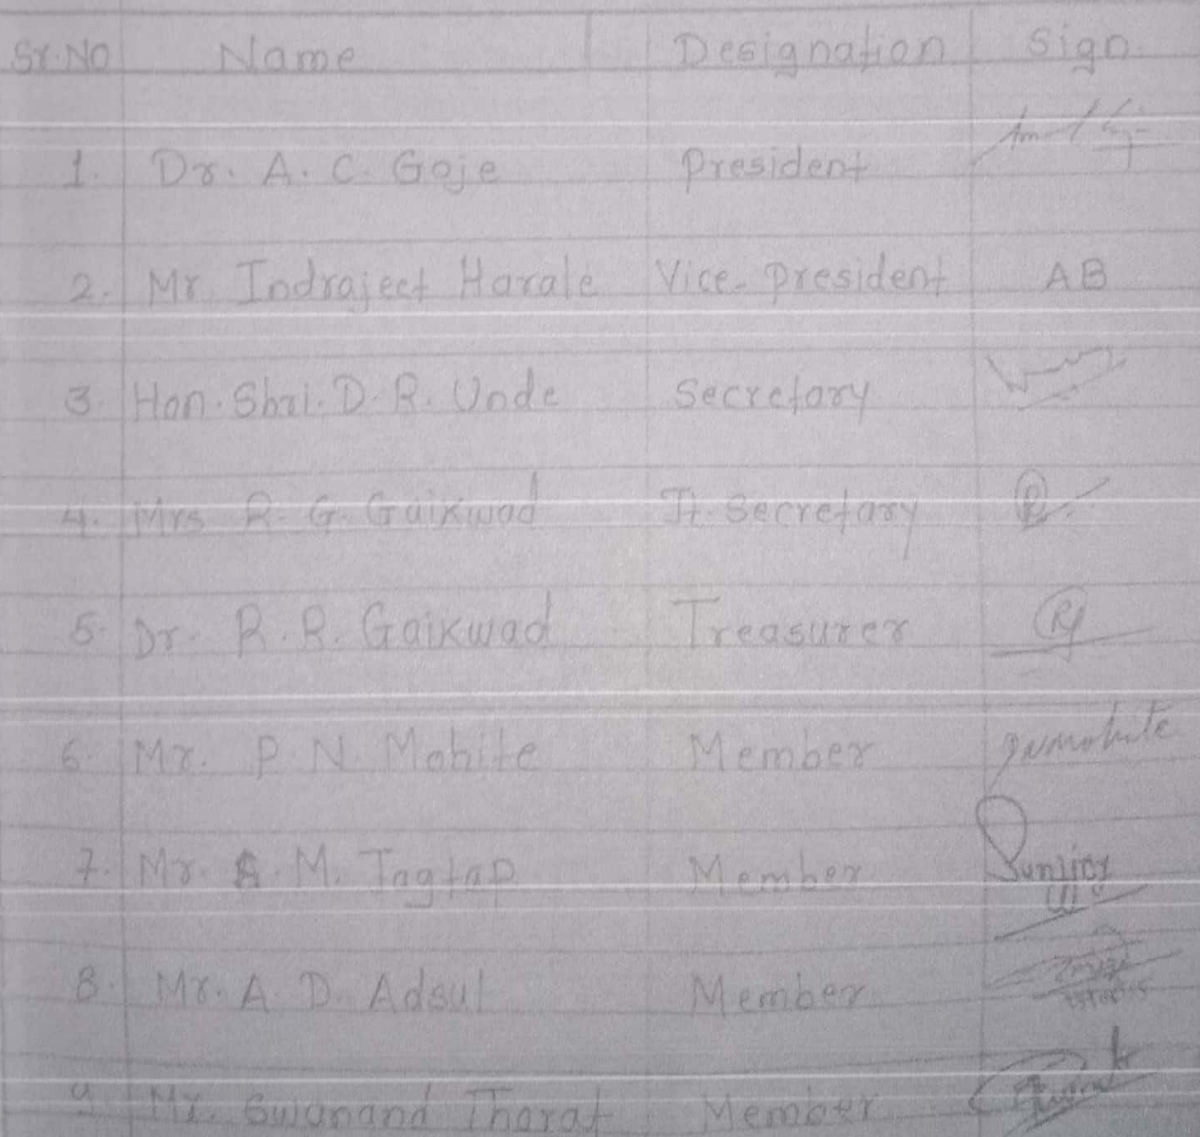 Sr.No Name Designation Sign.
1. Dr. A. C. Goje President
2. Mr. Indrajeet Harale Vice-president AB
3. Hon. Shri. D. R. Unde Secretary
4. Mrs R. G. Gaikwad Jt. Secretary
5. Dr. R. R. Gaikwad Treasurer
6. Mr. P. N. Mohite Member
7. Mr. M. Jagtap Member
8. Mr. A. D. Adsul Member
9. Mr. Swanand Thorat Member